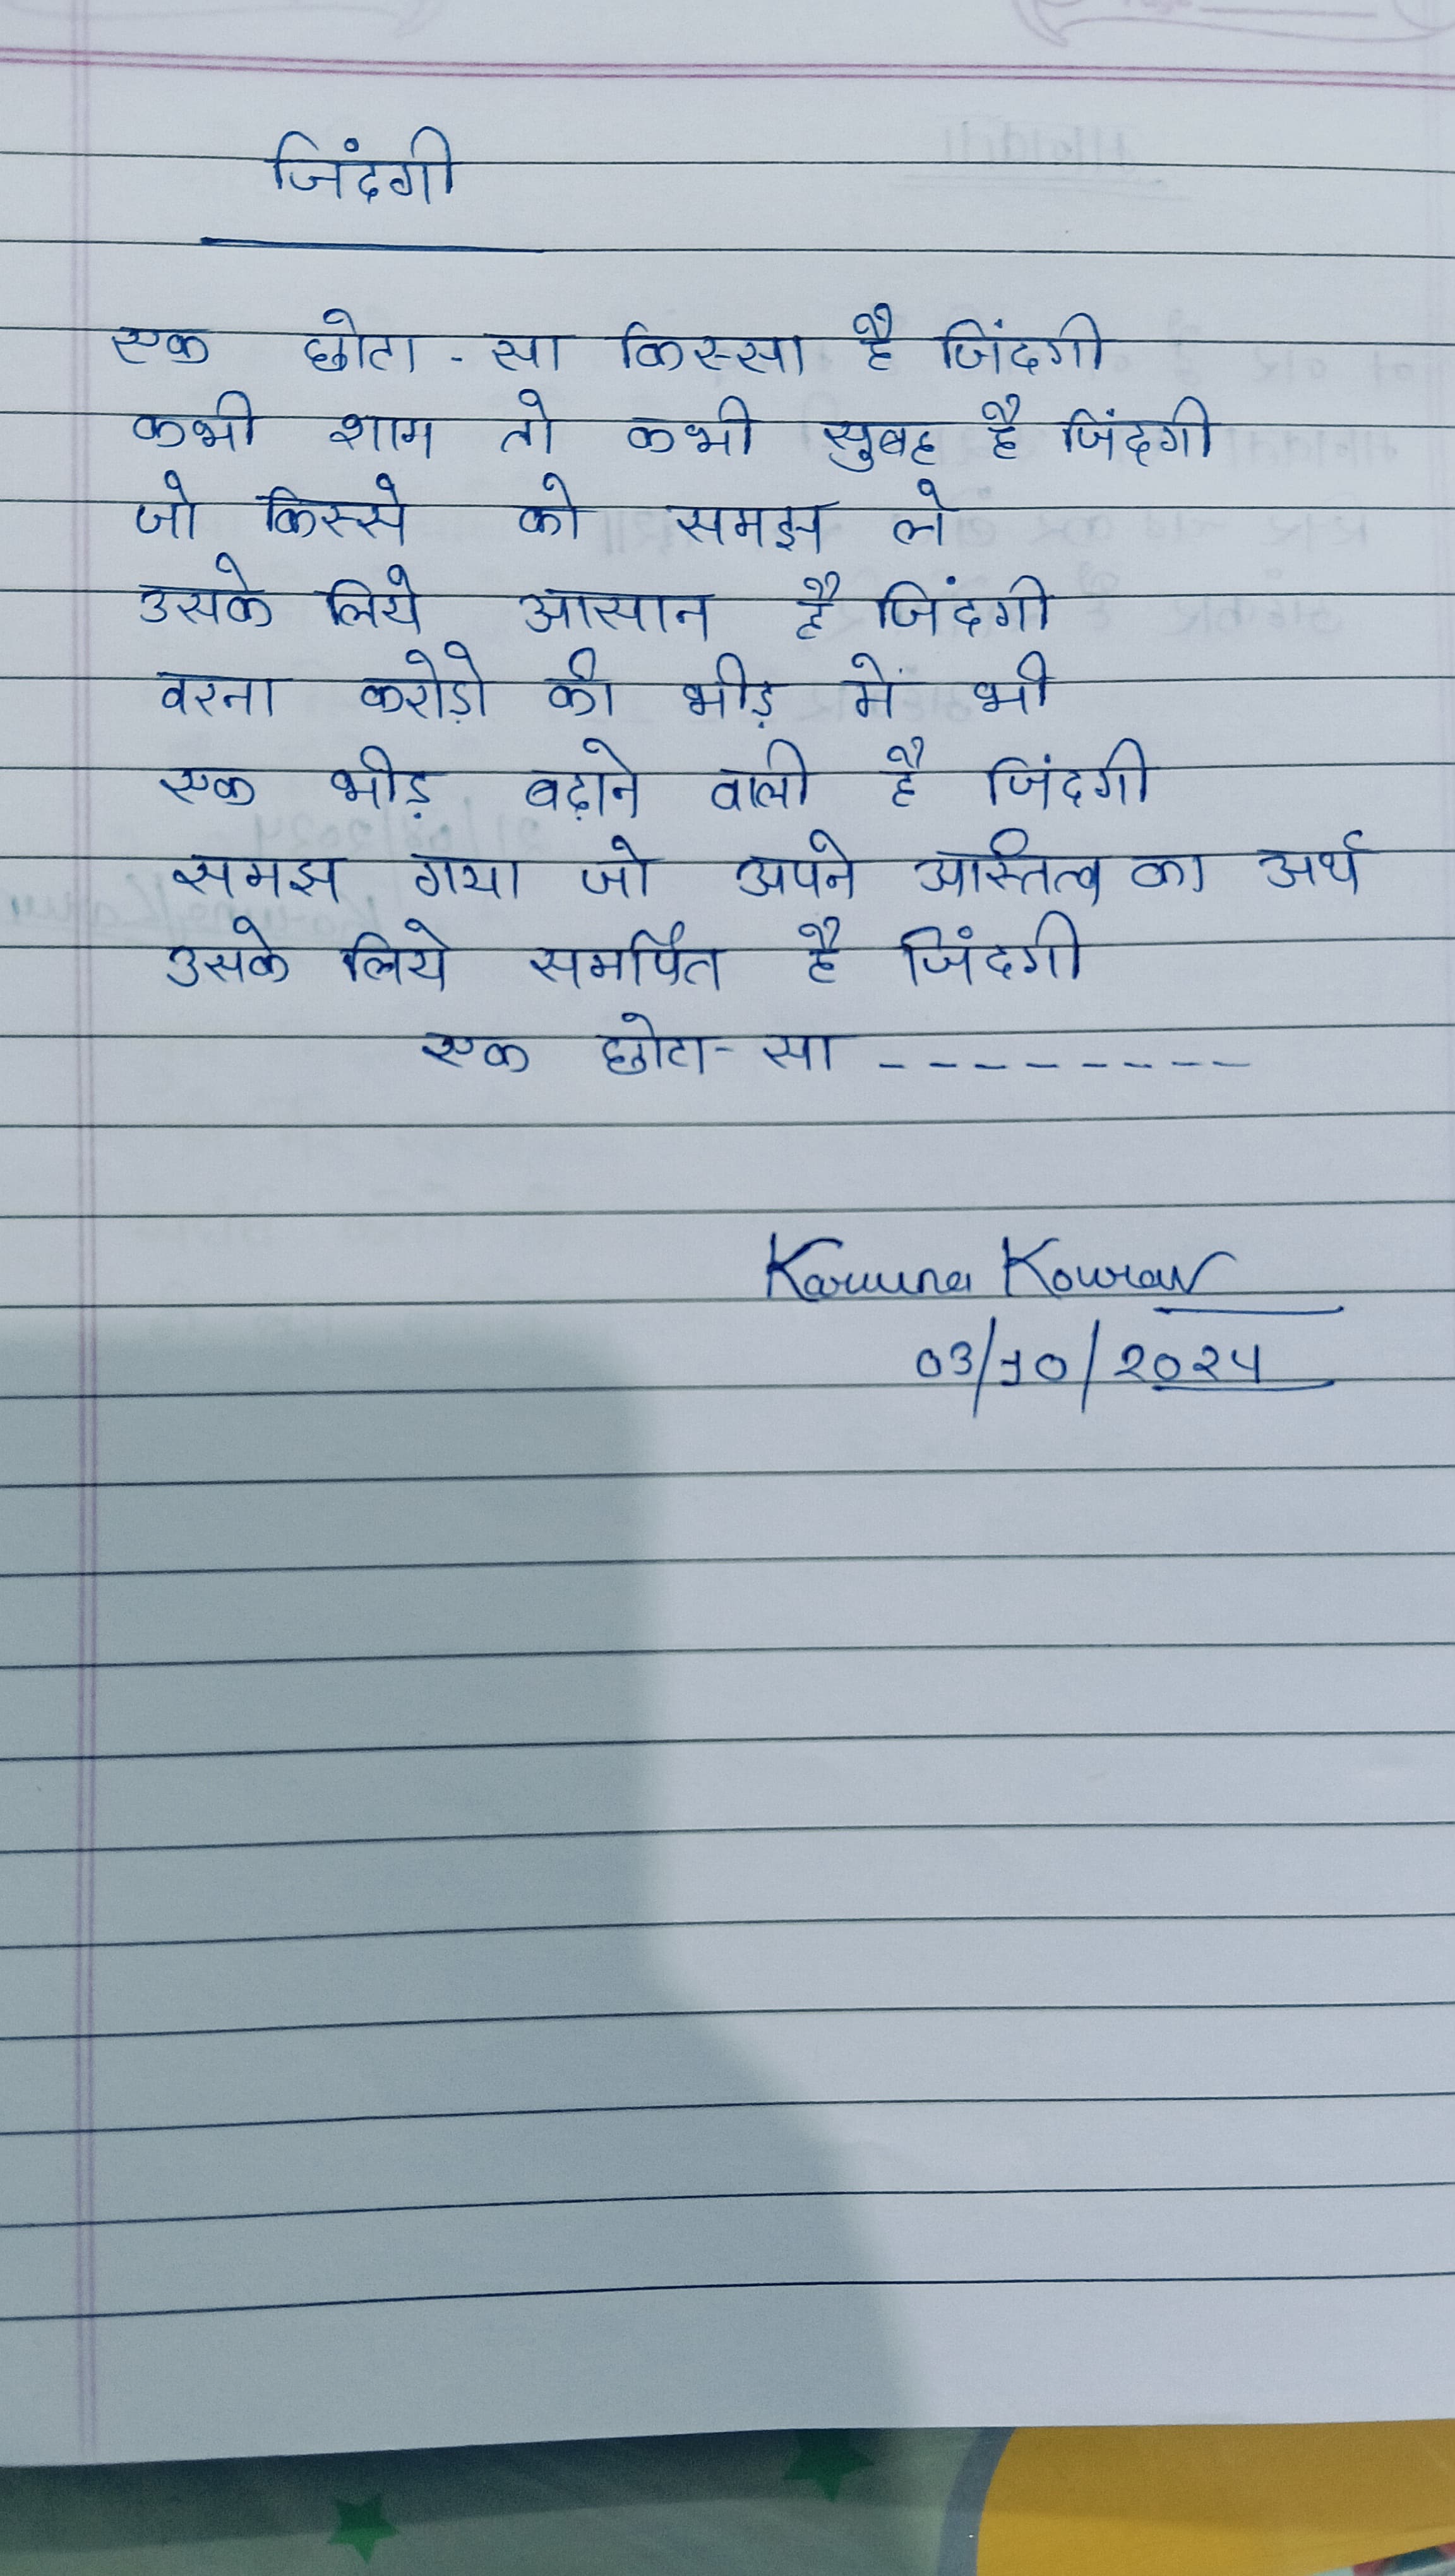 जिंदगी
एक छोटा - सा किस्सा है जिंदगी
कभी शाम तो कभी सुबह है जिंदगी
जो किस्से को समझ ले
उसके लिये आसान है जिंदगी
वरना करोड़ो की भीड़ में भी
एक भीड़ बढ़ाने वाली है जिंदगी
समझ गया जो अपने अस्तित्व का अर्थ
उसके लिये समर्पित है जिंदगी
एक छोटा - सा ---------
Karuna Kourav
03/10/2024